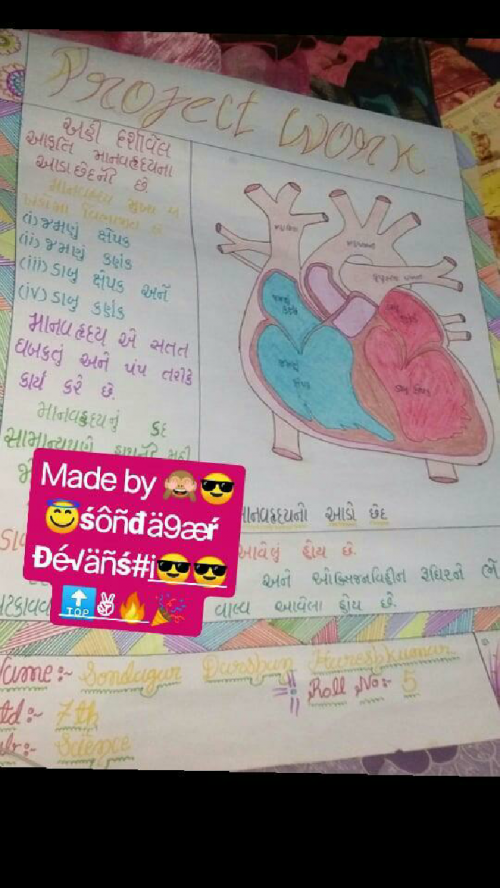 Project work
અહી દર્શાવેલ
આકૃતિ માનવહૃદયના
આડા છેદની છે
માનવહૃદય મુખ્ય ૪
(i) જમણું ક્ષેપક
(ii) જમણું કર્ણક
(iii) ડાબુ ક્ષેપક અને
(iv) ડાબુ કર્ણક
માનવહૃદય એ સતત
ધબકતું અને પંપ તરીકે
કાર્ય કરે છે.
માનવહૃદયનું કદ
સામાન્યપણે
જમણું
ડાબુ ક્ષેપક
માનવહૃદયનો આડો છેદ
Made by 🙈😎
😇śôñđä9æŕ
Đé√äñś#i😎😎
🔝✌🔥🎉
આવેલું હોય છે
અને ઓક્સિજનવિહીન રુધિરને
વાલ્વ આવેલા હોય છે.
Name:- Sondagar Darshan Hareshkumar
Roll No:- 5
Std:- 7th
Sub:- Science